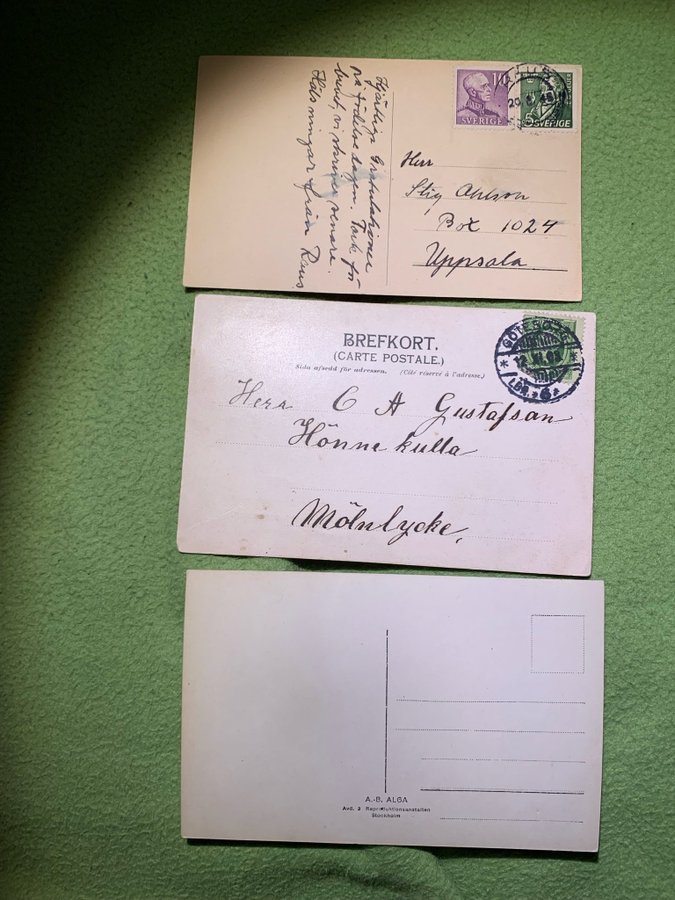 Hjärtliga Gratulationer
på födelsedagen. Tack för
brevet, vi skriver senare.
Hälsningar från Rens
10
SVERIGE
5
SVERIGE
Herr
Stig Ohlson
Box 1024
Uppsala
BREFKORT.
(CARTE POSTALE.)
Sida afsedd för adressen. (Côté réservé à l'adresse.)
GÖTEBORG
LBR. 6
Herr C A Gustafsan
Hönnekulla
Mölnlycke,
A.-B. ALGA
Avd. 2 Reproduktionsanstalten
Stockholm